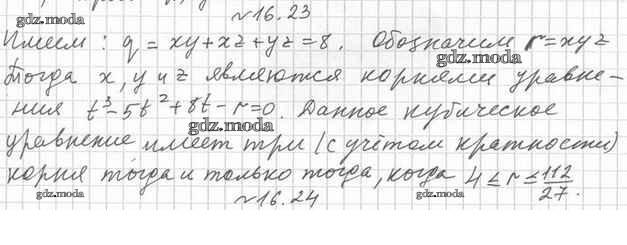 №16.23
gdz.moda
Имеем: q = xy+xz+yz=8. Обозначим r=xyz
gdz.moda
Тогда x, y и z являются корнями уравне-
ния t³-5t²+8t-r=0. Данное кубическое
gdz.moda
уравнение имеет три (с учётом кратности)
корня тогда и только тогда, когда 4≤r≤112/27.
gdz.moda gdz.moda
№16.24